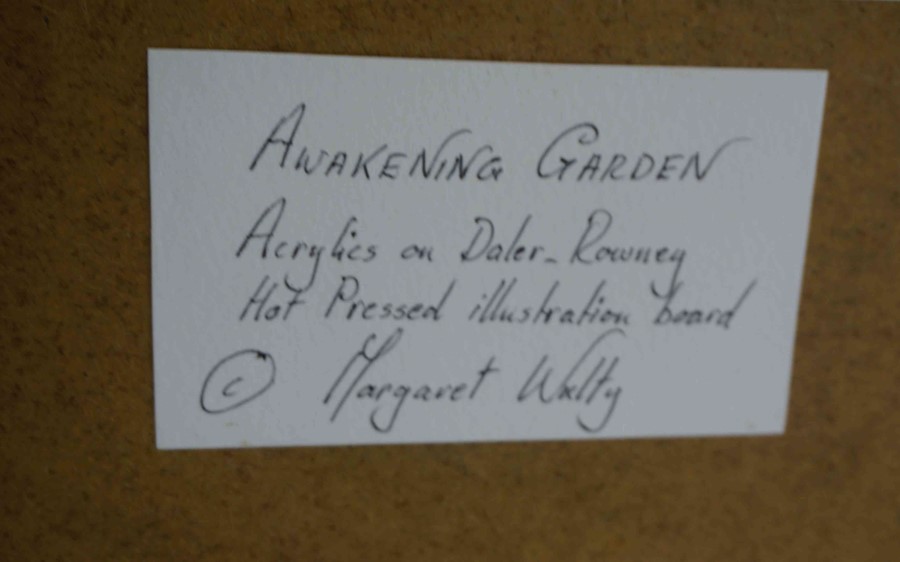 AWAKENING GARDEN
Acrylics on Daler-Rowney
Hot Pressed illustration board
© Margaret Walty